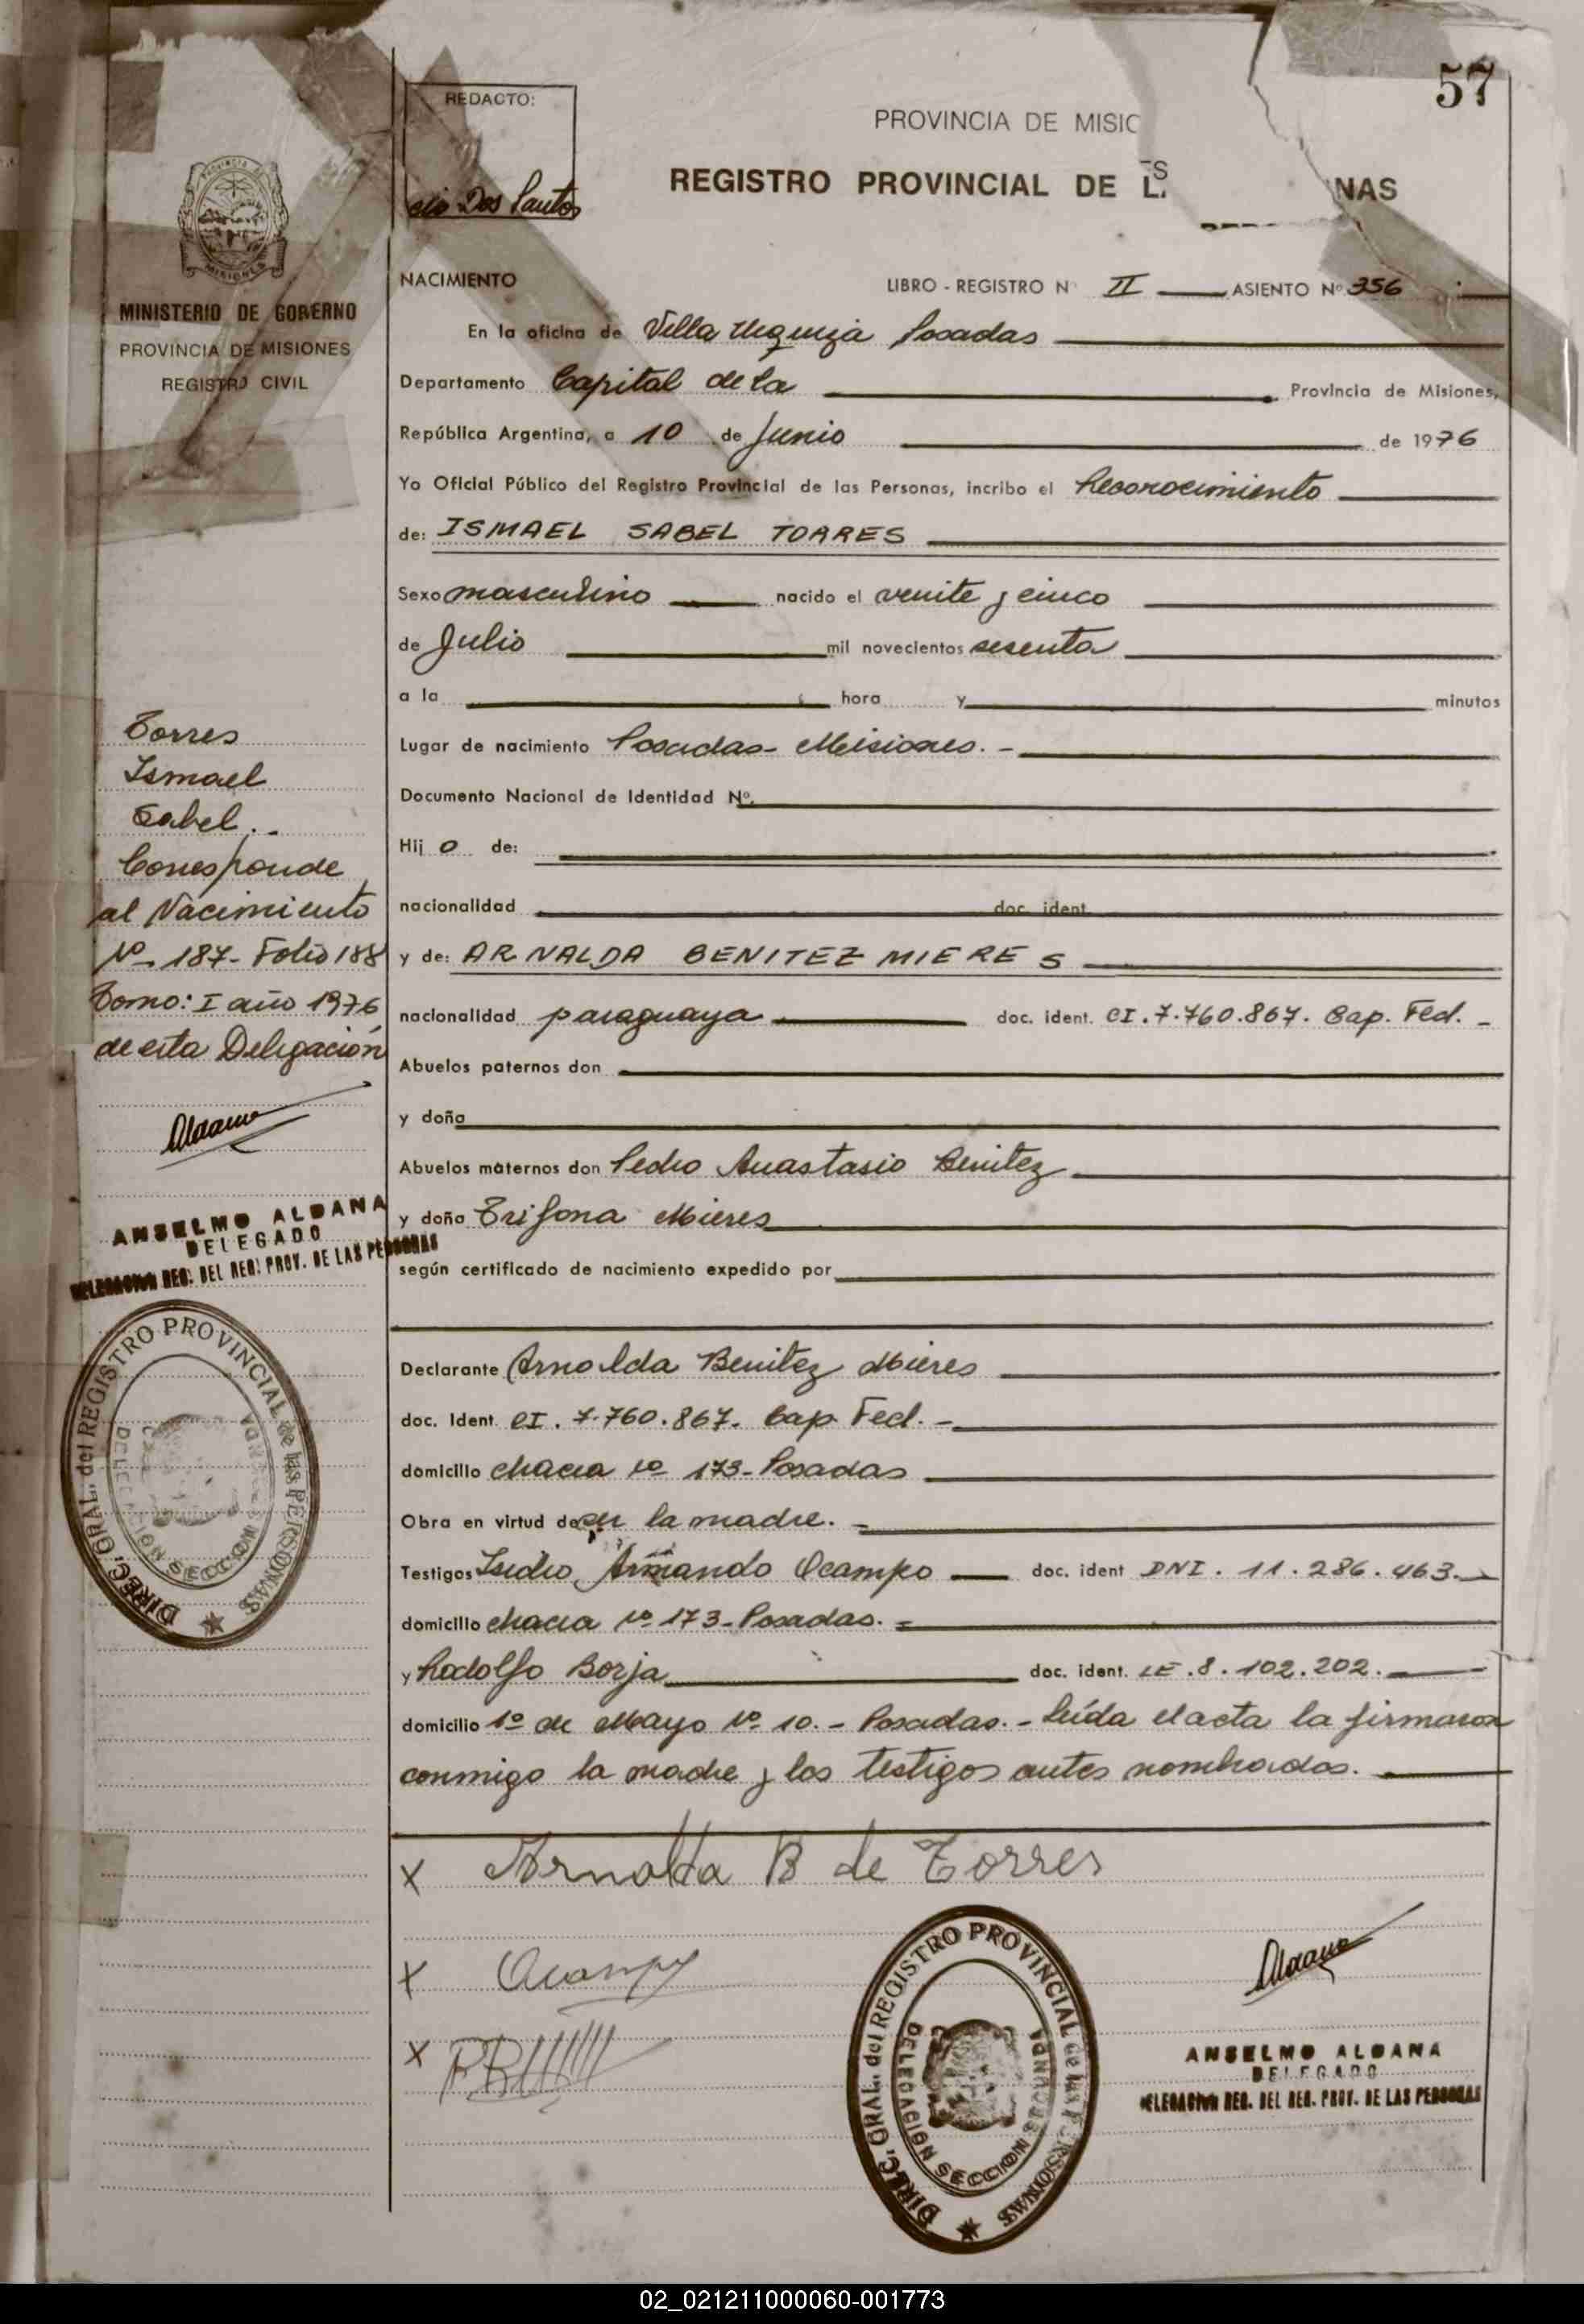 57
REDACTO:
cio Dos Santos
PROVINCIA DE MISIC
REGISTRO PROVINCIAL DE L. ES NAS
MISIONES
MINISTERIO DE GOBERNO
PROVINCIA DE MISIONES
REGISTRO CIVIL
NACIMIENTO LIBRO - REGISTRO N° II ASIENTO Nº 356
En la oficina de Villa Urquiza Posadas
Departamento Capital de la Provincia de Misiones,
República Argentina, a 10 de Junio de 1976
Yo Oficial Público del Registro Provincial de las Personas, incribo el Reconocimiento
de: ISMAEL SABEL TORRES
Sexo masculino nacido el veinte y cinco
de Julio mil novecientos sesenta
a la hora y minutos
Lugar de nacimiento Posadas - Misiones. -
Documento Nacional de Identidad Nº.
Hij o de:
nacionalidad doc. ident.
y de: ARNALDA BENITEZ MIERES
nacionalidad paraguaya doc. ident. CI. 7.760.867. Cap. Fed. -
Abuelos paternos don
y doña
Abuelos maternos don Pedro Anastasio Benitez
y doña Trifona Mieres
según certificado de nacimiento expedido por
Declarante Arnalda Benitez Mieres
doc. Ident CI. 7.760.867. Cap. Fed. -
domicilio chacra Nº 173 - Posadas
Obra en virtud de ser la madre. -
Testigos Isidro Armando Ocampo doc. ident DNI. 11.286.463.
domicilio chacra Nº 173 - Posadas. -
y Rodolfo Borja doc. ident. LE. 8.102.202.
domicilio 1º de Mayo Nº 10. - Posadas. - Leída el acta la firmaron
conmigo la madre y los testigos antes nombrados.
X Arnalda B de Torres
X Ocampo
X
Torres
Ismael
Sabel.
Corresponde
al Nacimiento
Nº 187 - Folio 188
Tomo: I año 1976
de esta Delegación
Aldana
ANSELMO ALDANA
DELEGADO
DELEGACION REG. DEL REG. PROV. DE LAS PERSONAS
DIREC. GRAL. del REGISTRO PROVINCIAL de las PERSONAS
DELEGACION SECCION
Aldana
ANSELMO ALDANA
DELEGADO
DELEGACION REG. DEL REG. PROV. DE LAS PERSONAS
DIREC. GRAL. del REGISTRO PROVINCIAL de las PERSONAS
DELEGACION SECCION SEGUNDA
02_021211000060-001773